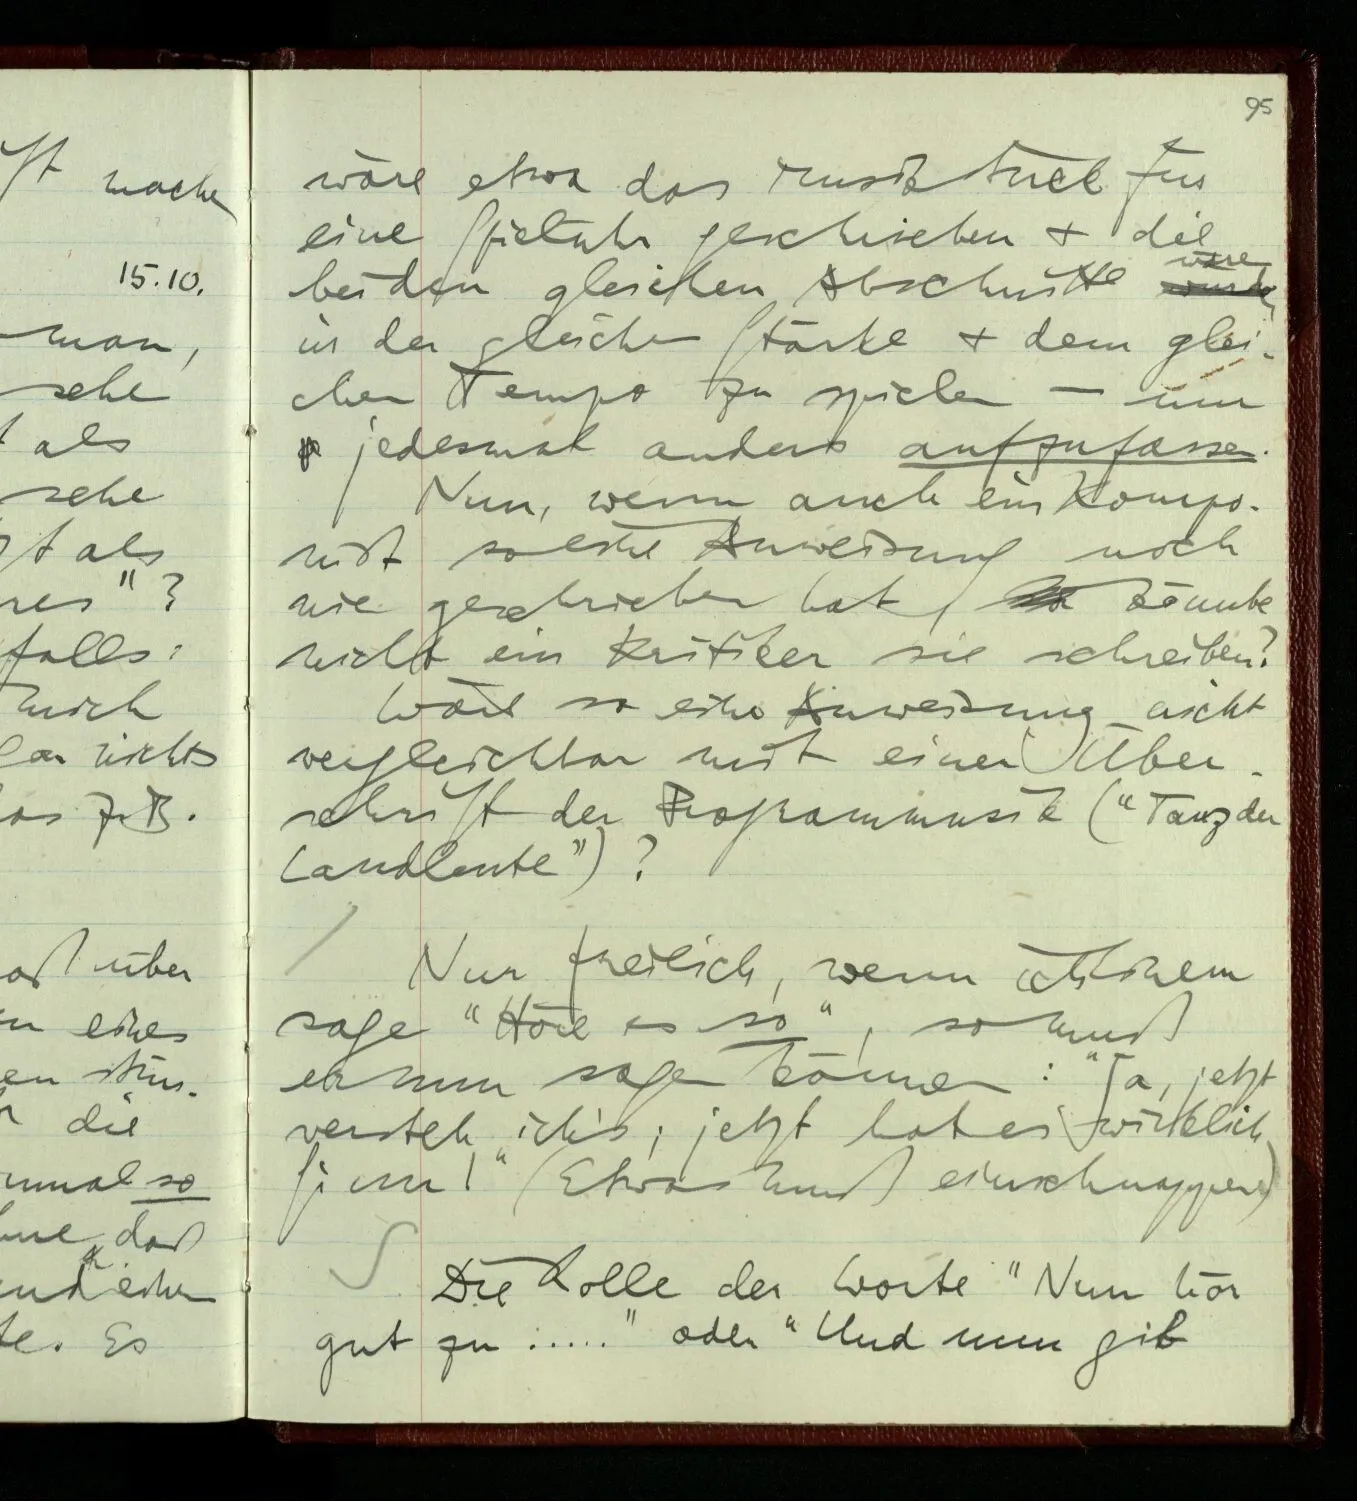 ft machen
15.10.
man,
sehe
als
sehe
t als
res"?
falls:
mich
nichts
as z.B.
daß über
eines
en
die
nmal so
daß
und einer
te. Es
95
wäre etwa das Musikstück für
eine Spieluhr geschrieben + die
beiden gleichen Abschnitte wären
in der gleichen Stärke + dem glei-
chen Tempo zu spielen — nur
jedesmal anders aufzufassen.
Nun, wenn auch ein Kompo-
nist solche Anweisung noch
nie geschrieben hat, könnte
nicht ein Kritiker sie schreiben?
Wäre so eine Anweisung nicht
vergleichbar mit einer Über-
schrift der Programmusik ("Tanz der
Landleute")?
Nur freilich, wenn ich Einem
sage "Höre es so", so muß
er nun sagen können: "Ja, jetzt
versteh ich's; jetzt hat es wirklich
Sinn!" (Etwas muß einschnappen)
S Die Rolle der Worte "Nun hör
gut zu....." oder "Und nun gib